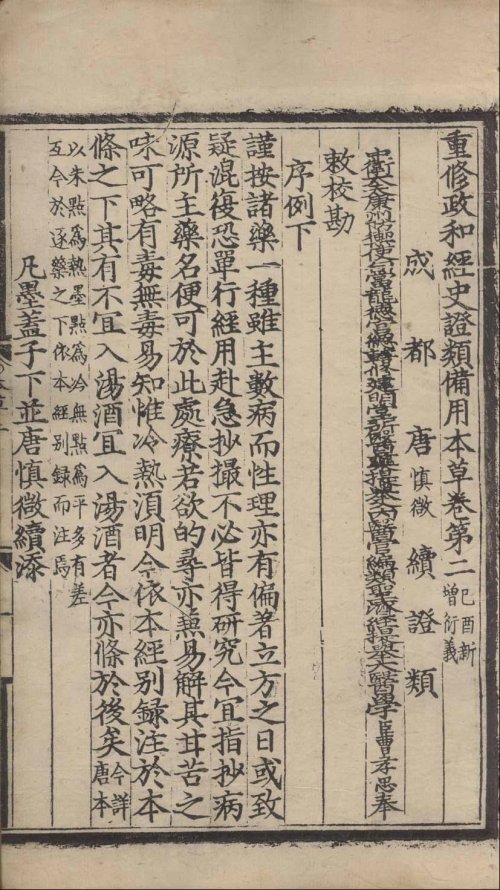 重修政和經史證類備用本草卷第二己酉新增衍義
成都唐慎微續證類
中衛大夫康州防禦使句當龍德宮總轄修建明堂所醫藥提舉入內醫官編類聖濟經提舉太醫學臣曹孝忠奉
敕校勘
序例下
謹按諸藥一種雖主數病而性理亦有偏著立方之日或致
疑混復恐單行經用赴急抄撮不必皆得研究今宜指抄病
源所主藥名便可於此處療若欲的尋亦兼易解其甘苦之
味可略有毒無毒易知惟冷熱須明今依本經別録注於本
條之下其有不宜入湯酒宜入湯酒者今亦條於後矣今詳唐本
以朱點爲熱墨點爲冷無點爲平多有差
互今於逐藥之下依本經別録而注焉
凡墨蓋子下並唐慎微續添